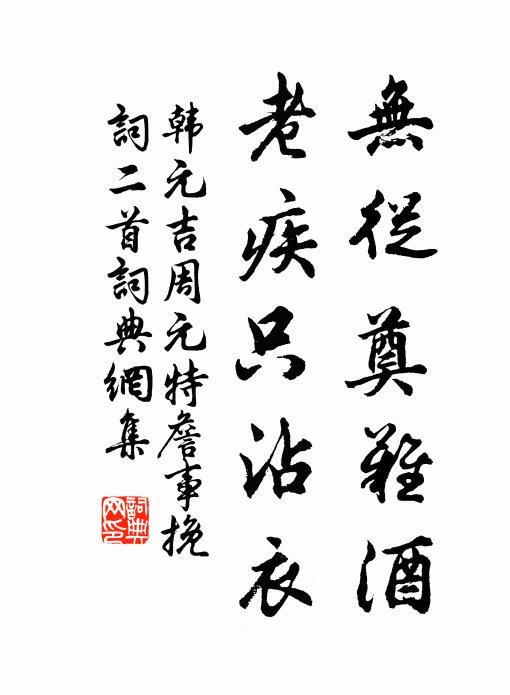 無從奠雞酒
老疾只沾衣
韩元吉周元特詹事挽
詞二首詞典網集
詞典
网印